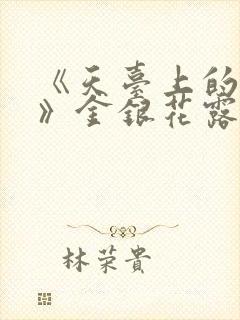 《天臺上的
》金銀花露
林荣貴